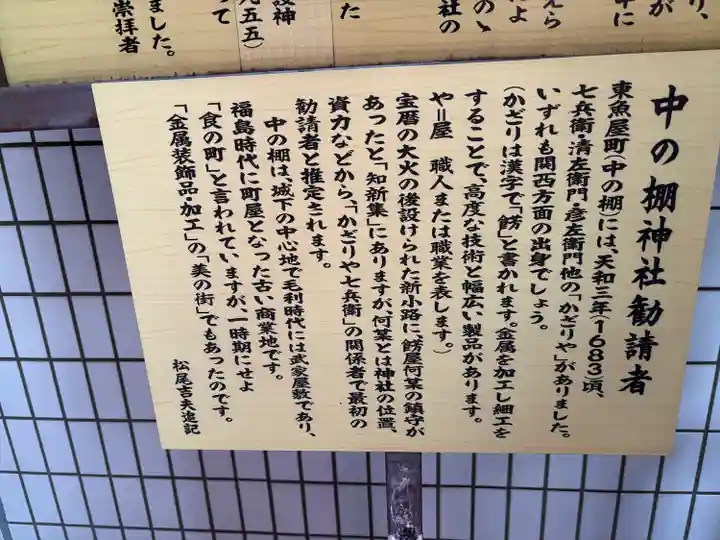 り、
が
中に
えら
によ
のゝ
社の
した
設神
九五五）
って
ました。
崇拝者
中の棚神社勧請者
東魚屋町（中の棚）には、天和三年（1683）頃、
七兵衛・清左衛門・彦左衛門他の「かざりや」がありました。
いずれも関西方面の出身でしょう。
（かざりは漢字で「餝」と書かれます。金属を加工し細工を
することで、高度な技術と幅広い製品があります。
や＝屋　職人または職業を表します。）
宝暦の大火の後設けられた新小路に、餝屋何某の鎮守が
あったと「知新集」にありますが、何某とは神社の位置、
資力などから、「かざりや七兵衛」の関係者で最初の
勧請者と推定されます。
中の棚は、城下の中心地で毛利時代には武家屋敷であり、
福島時代に町屋となった古い商業地です。
「食の町」と言われていますが、一時期にせよ
「金属装飾品・加工」の「美の街」でもあったのです。
松尾吉夫追記